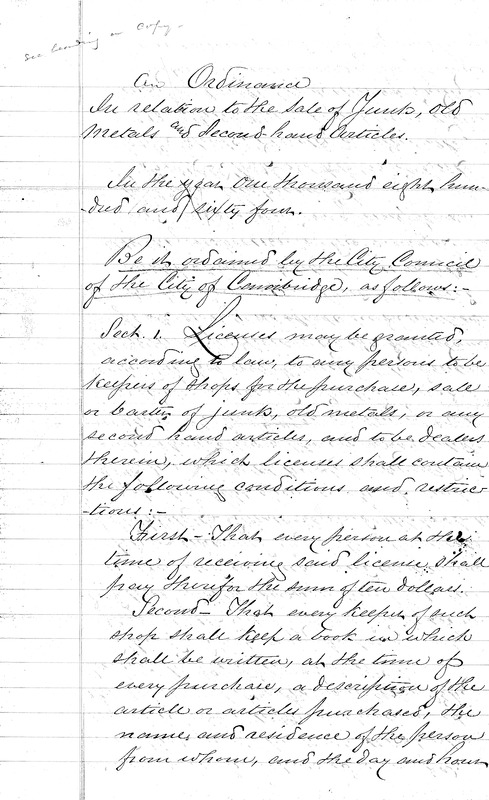 see heading on copy.
An Ordinance
In relation to the sale of Junk, Old
Metals and Second hand Articles.
In the year One thousand eight hun-
-dred and sixty four.
Be it ordained by the City Council
of the City of Cambridge, as follows:-
Sect. 1. Licenses may be granted,
according to law, to any persons to be
keepers of shops for the purchase, sale
or barter of junk, old metals, or any
second hand articles, and to be dealers
therein, which licenses shall contain
the following conditions and restric-
-tions:-
First - That every person at the
time of receiving said license shall
pay therefor the sum of ten dollars.
Second - That every keeper of such
shop shall keep a book in which
shall be written, at the time of
every purchase, a description of the
article or articles purchased, the
name, and residence of the person
from whom, and the day and hour